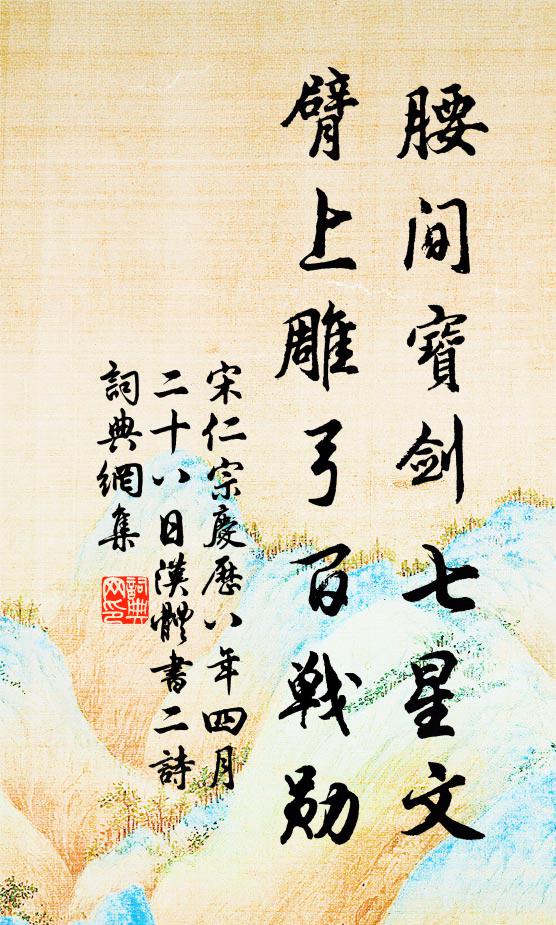 腰间寶劍七星文
臂上雕弓百戦勛
宋仁宗慶歷八年四月
二十八日漢體書二詩
詞典網集
詞典
网印